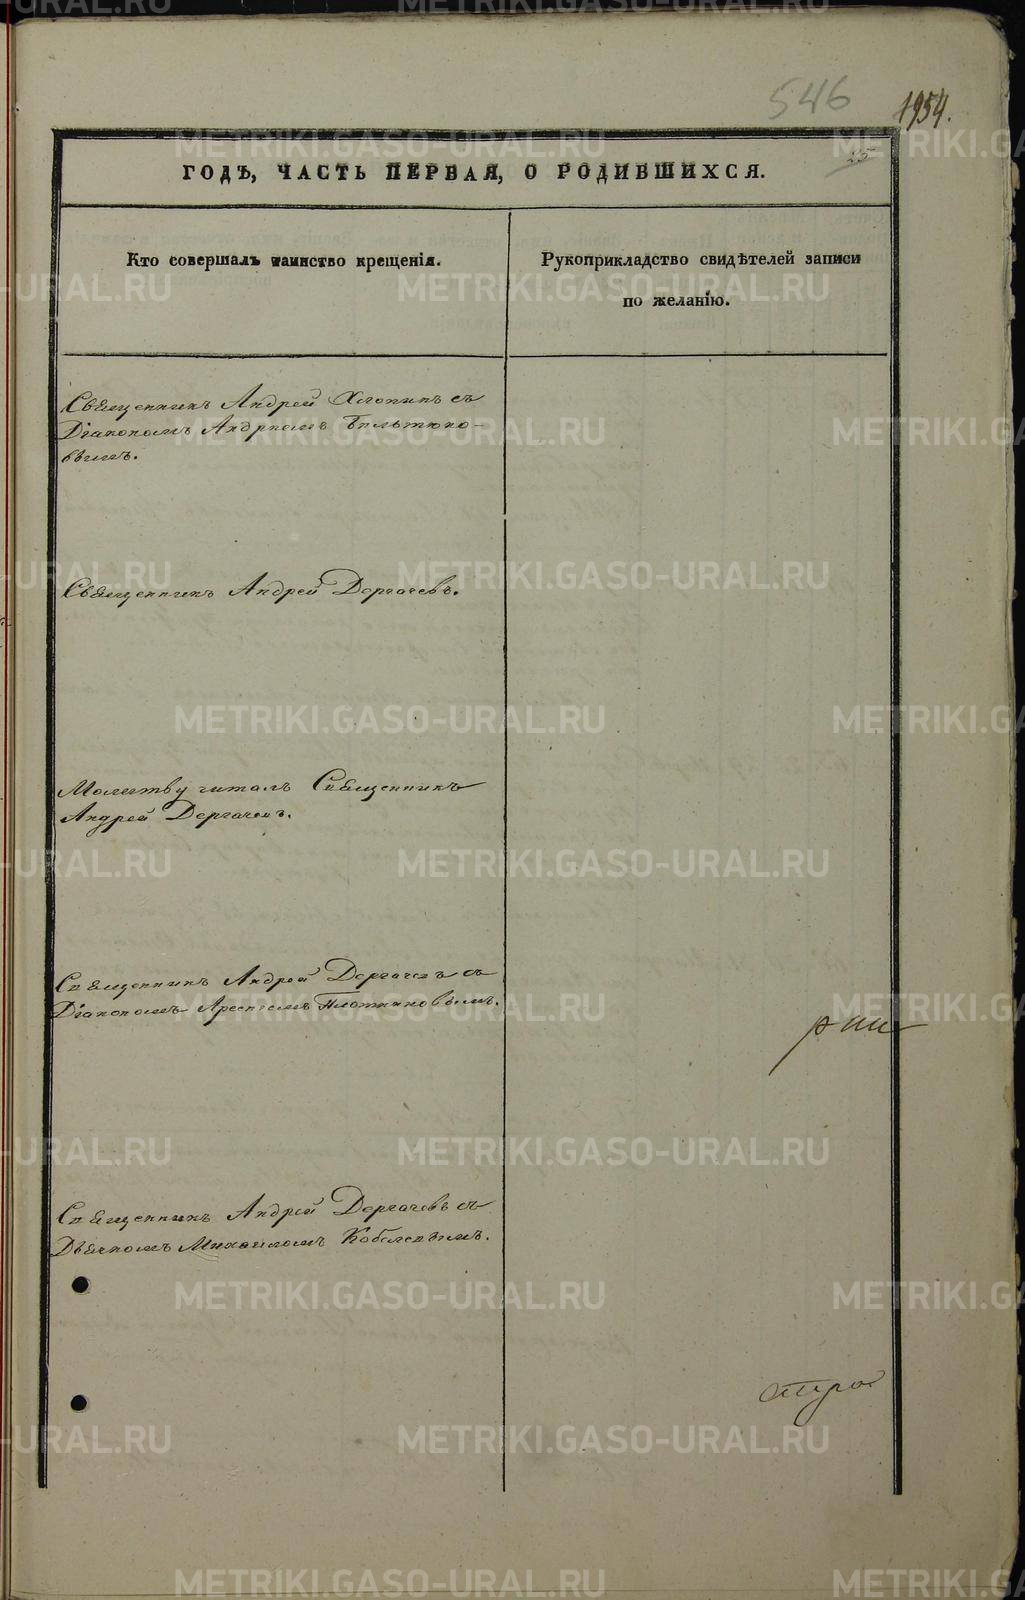 546
1954.
25
ГОДЪ, ЧАСТЬ ПЕРВАЯ, О РОДИВШИХСЯ.
Кто совершалъ таинство крещенія.
Рукоприкладство свидѣтелей записи
по желанію.
Священникъ Андрей Хлопинъ съ
Діакономъ Андреемъ
вымъ.
Священникъ Андрей Дергачевъ.
Молитву читалъ Священникъ
Андрей Дергачевъ.
Священникъ Андрей Дергачевъ съ
Діакономъ Плотниковымъ.
Священникъ Андрей Дергачевъ съ
Дьячкомъ Михаиломъ
METRIKI.GASO-URAL.RU